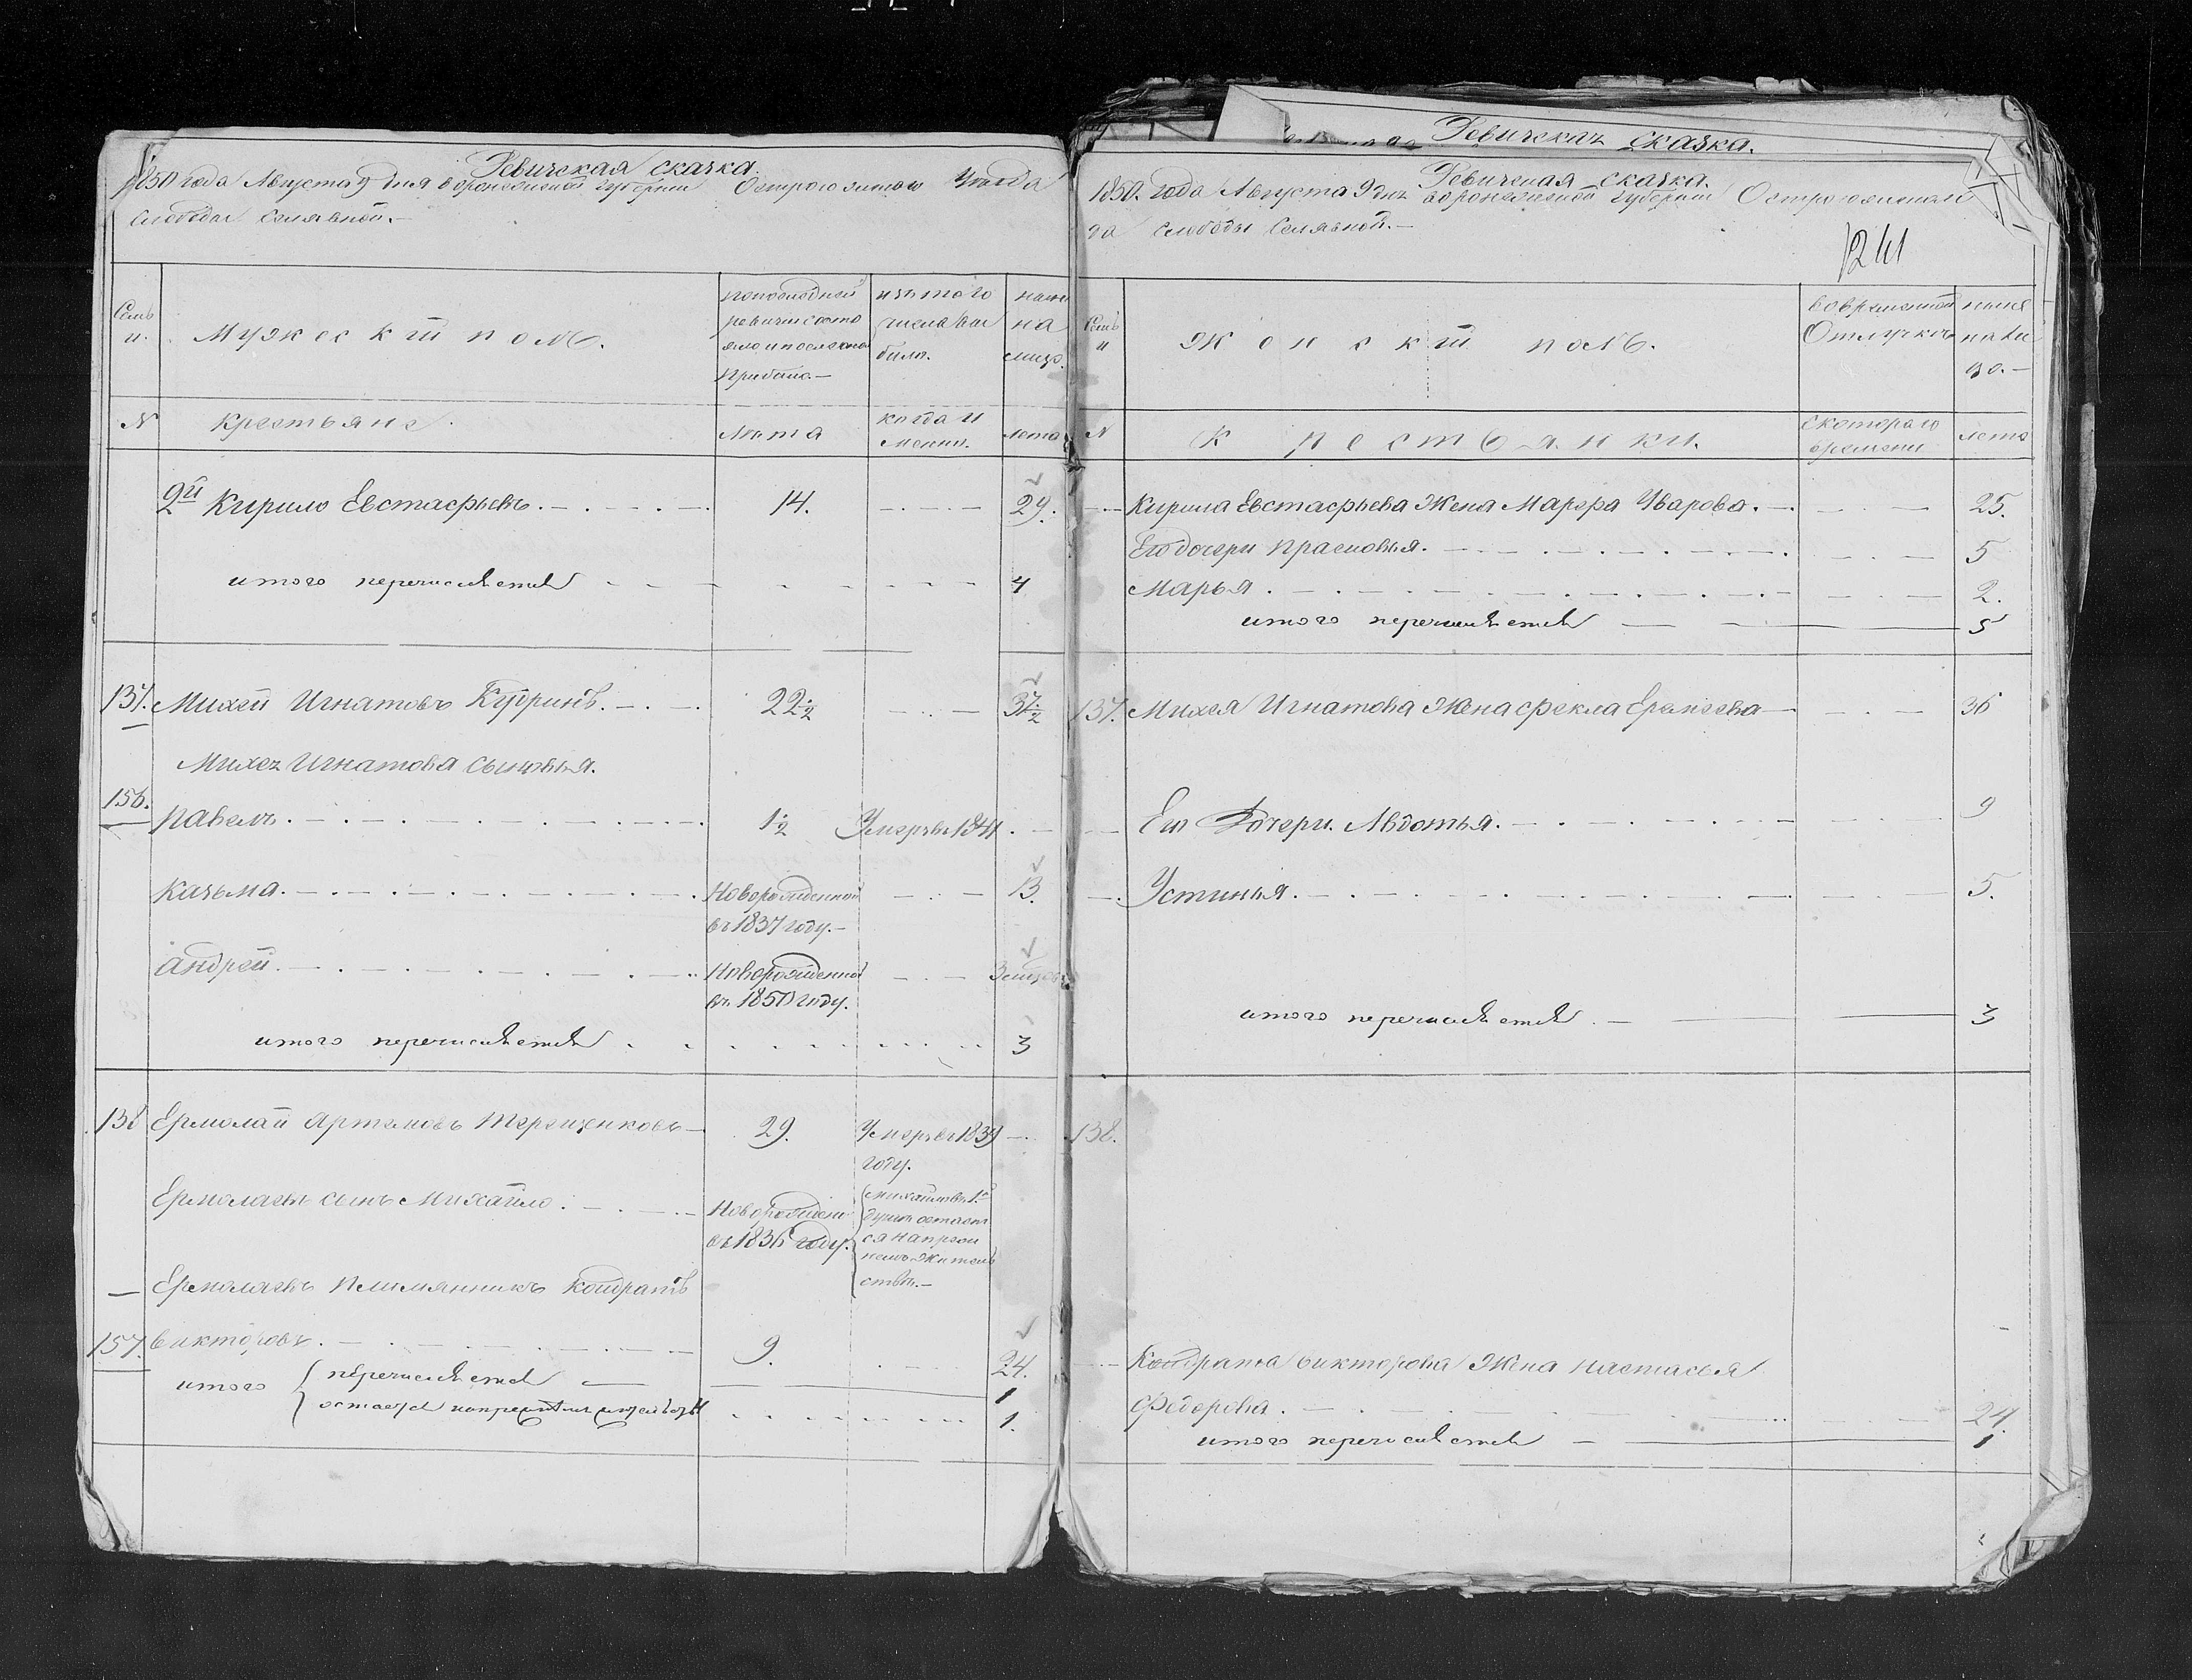 Ревизская сказка.
1850 года Августа 9 дня Воронежской губернии Острогожскаго Уезда
слободы Селявной.—
Семьи.
Мужескій полъ.
по последней
ревизіи состо
яло и после оной
прибыло.—
изъ того
числа вы
было.
ныне
на
лицо.
N
крестьяне.
Лета
когда и
менно.
лета
2й Кирило Евстафьевъ. 14. 29.
итого перечисляется 4
137. Михей Игнатовъ Куринъ. 22½ 37½
Михея Игнатова сыновья.
156.
Павелъ. 1½ Умеръ в 1841
Казьма. Новорожденной 13.
въ 1837 году.—
Андрей. Новорожденной 3 месец
въ 1850 году.
итого перечисляется 3
138 Ермолай Артемовъ Терещенковъ 29. Умеръ в 1839
году.
Ермолаевъ сынъ Михайло. Новорожден
въ 1836 году.
Михайло въ 1й
душе остает
ся на преж
немъ житель
стве.—
Ермолаевъ племянникъ Кондратъ
157. Викторовъ. 9. 24.
итого перечисляется 1
остается на прежнем жительстве 1.
Ревизская сказка.
Ревизская сказка.
1850. года Августа 9 дня Воронежской губерніи Острогожскаго
да слободы Селявной.—
1241
Семьи
Женскій полъ.
во временной
Отлучке
ныне
на ли
цо.—
N
Крестьянки.
с котораго
времени
лета
Кирила Евстафьева Жена Марфа Уварова. 25.
Его дочери Прасковья. 5
Марья. 2.
итого перечисляется 5
137. Михея Игнатова Жена Фекла Еремеева 36
Его Дочери. Авдотья. 9
Устинья. 5.
итого перечисляется. 3
138.
Кондрата Викторова Жена Настасья
Федорова. 24.
итого перечисляется 1